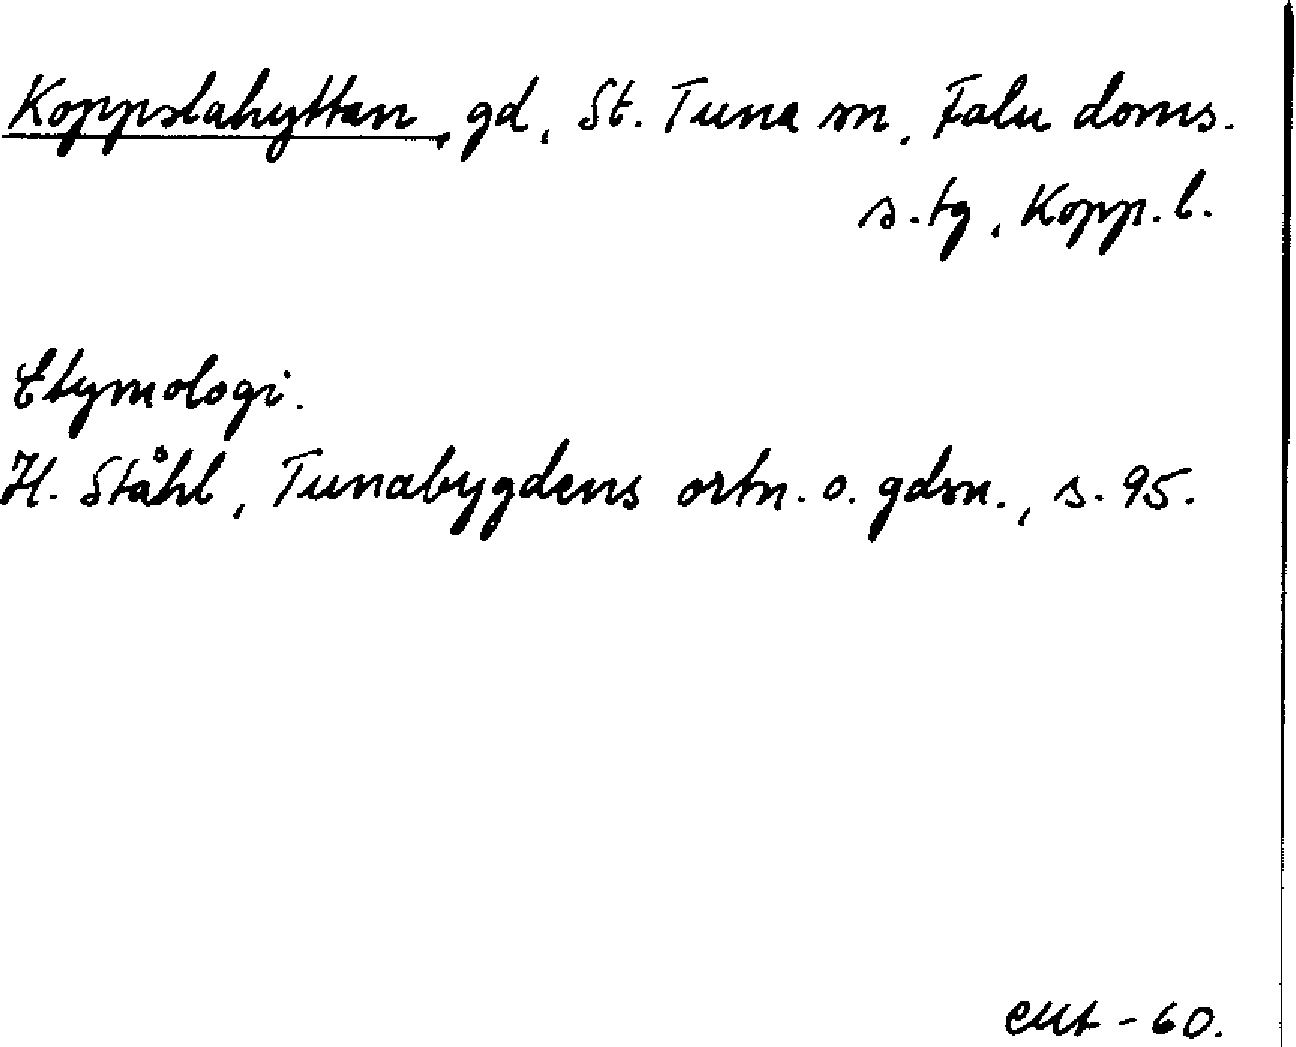 Koppslahyttan, gd, St. Tuna sn, Falu doms.
s. tg, Kopp. l.
Etymologi.
H. Ståhl, Tunabygdens ortn. o. gdsn., s. 95.
-60.